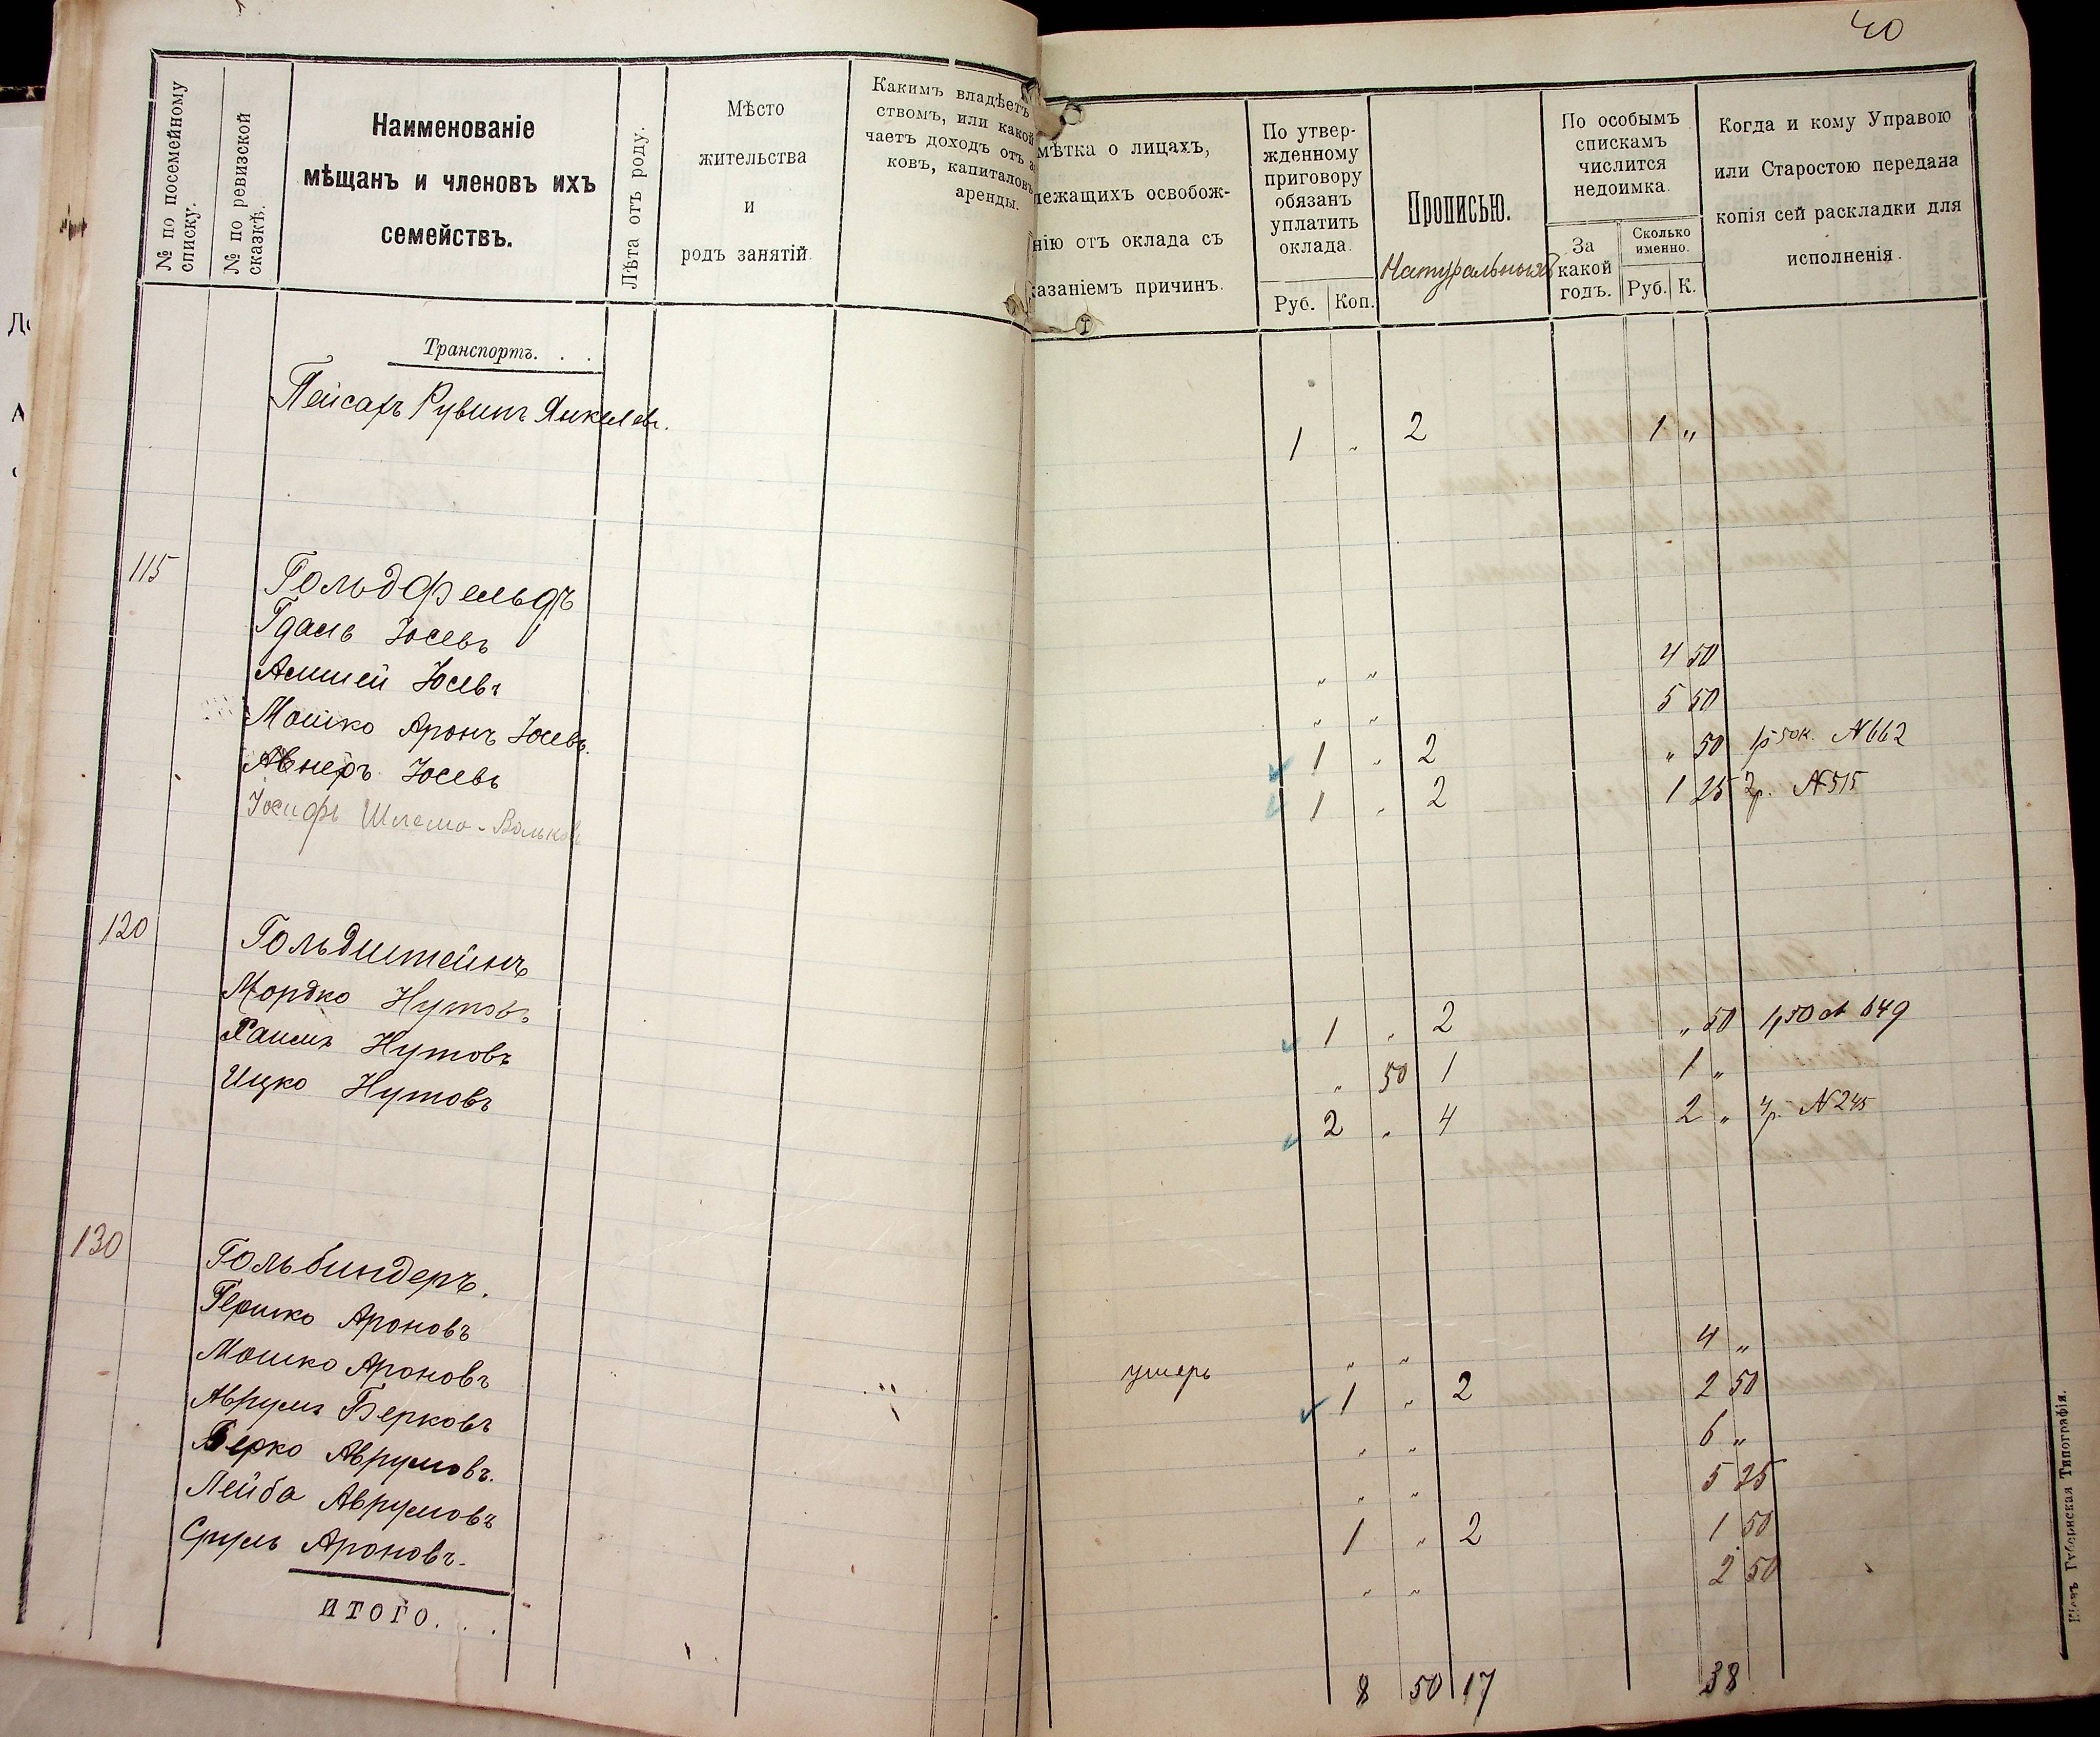 40
№ по посемейному списку.
№ по ревизской сказкѣ.
Наименованіе
мѣщанъ и членовъ ихъ
семействъ.
Лѣта отъ роду.
Мѣсто
жительства
и
родъ занятій.
Какимъ владѣетъ
ствомъ, или какой
чаетъ доходъ отъ
ковъ, капиталовъ
аренды.
мѣтка о лицахъ,
лежащихъ освобож-
нію отъ оклада съ
казаніемъ причинъ.
По утвер-
жденному
приговору
обязанъ
уплатить
оклада.
Руб. Коп.
Прописью.
Натуральныхъ
По особымъ
спискамъ
числится
недоимка.
За
какой
годъ.
Сколько
именно.
Руб. К.
Когда и кому Управою
или Старостою передана
копія сей раскладки для
исполненія.
Транспортъ. . .
Пейсахъ Рувинъ Янкелев. 1 „ 2 1 „
115 Гольдфельдъ
Гдаль Юсевъ „ „ 4 50
Амшей Юсевъ „ „ 5 50
Мошко Аронъ Юсевъ. 1 „ 2 „ 50 1р 50к. N 662
Авнеръ Юсевъ 1 „ 2 1 25 2р. N 515
Іосифъ Шлемо-Вольков
120 Гольдштейнъ
Мордко Нутовъ 1 „ 2 „ 50 1р50 № 649
Хаимъ Нутовъ „ 50 1 1 „
Ицко Нутовъ 2 „ 4 2 „ 4р. N 245
130 Гольбиндеръ.
Гершко Ароновъ „ „ 4 „
Мошко Ароновъ 1 „ 2 2 50
умеръ
Аврумъ Берковъ „ „ 6 „
Берко Аврумовъ. „ „ 5 25
Лейба Аврумовъ 1 „ 2 1 50
Сруль Ароновъ. „ „ 2 50
ИТОГО. . .
8 50 17 38
Кіевъ Губернская Типографія.